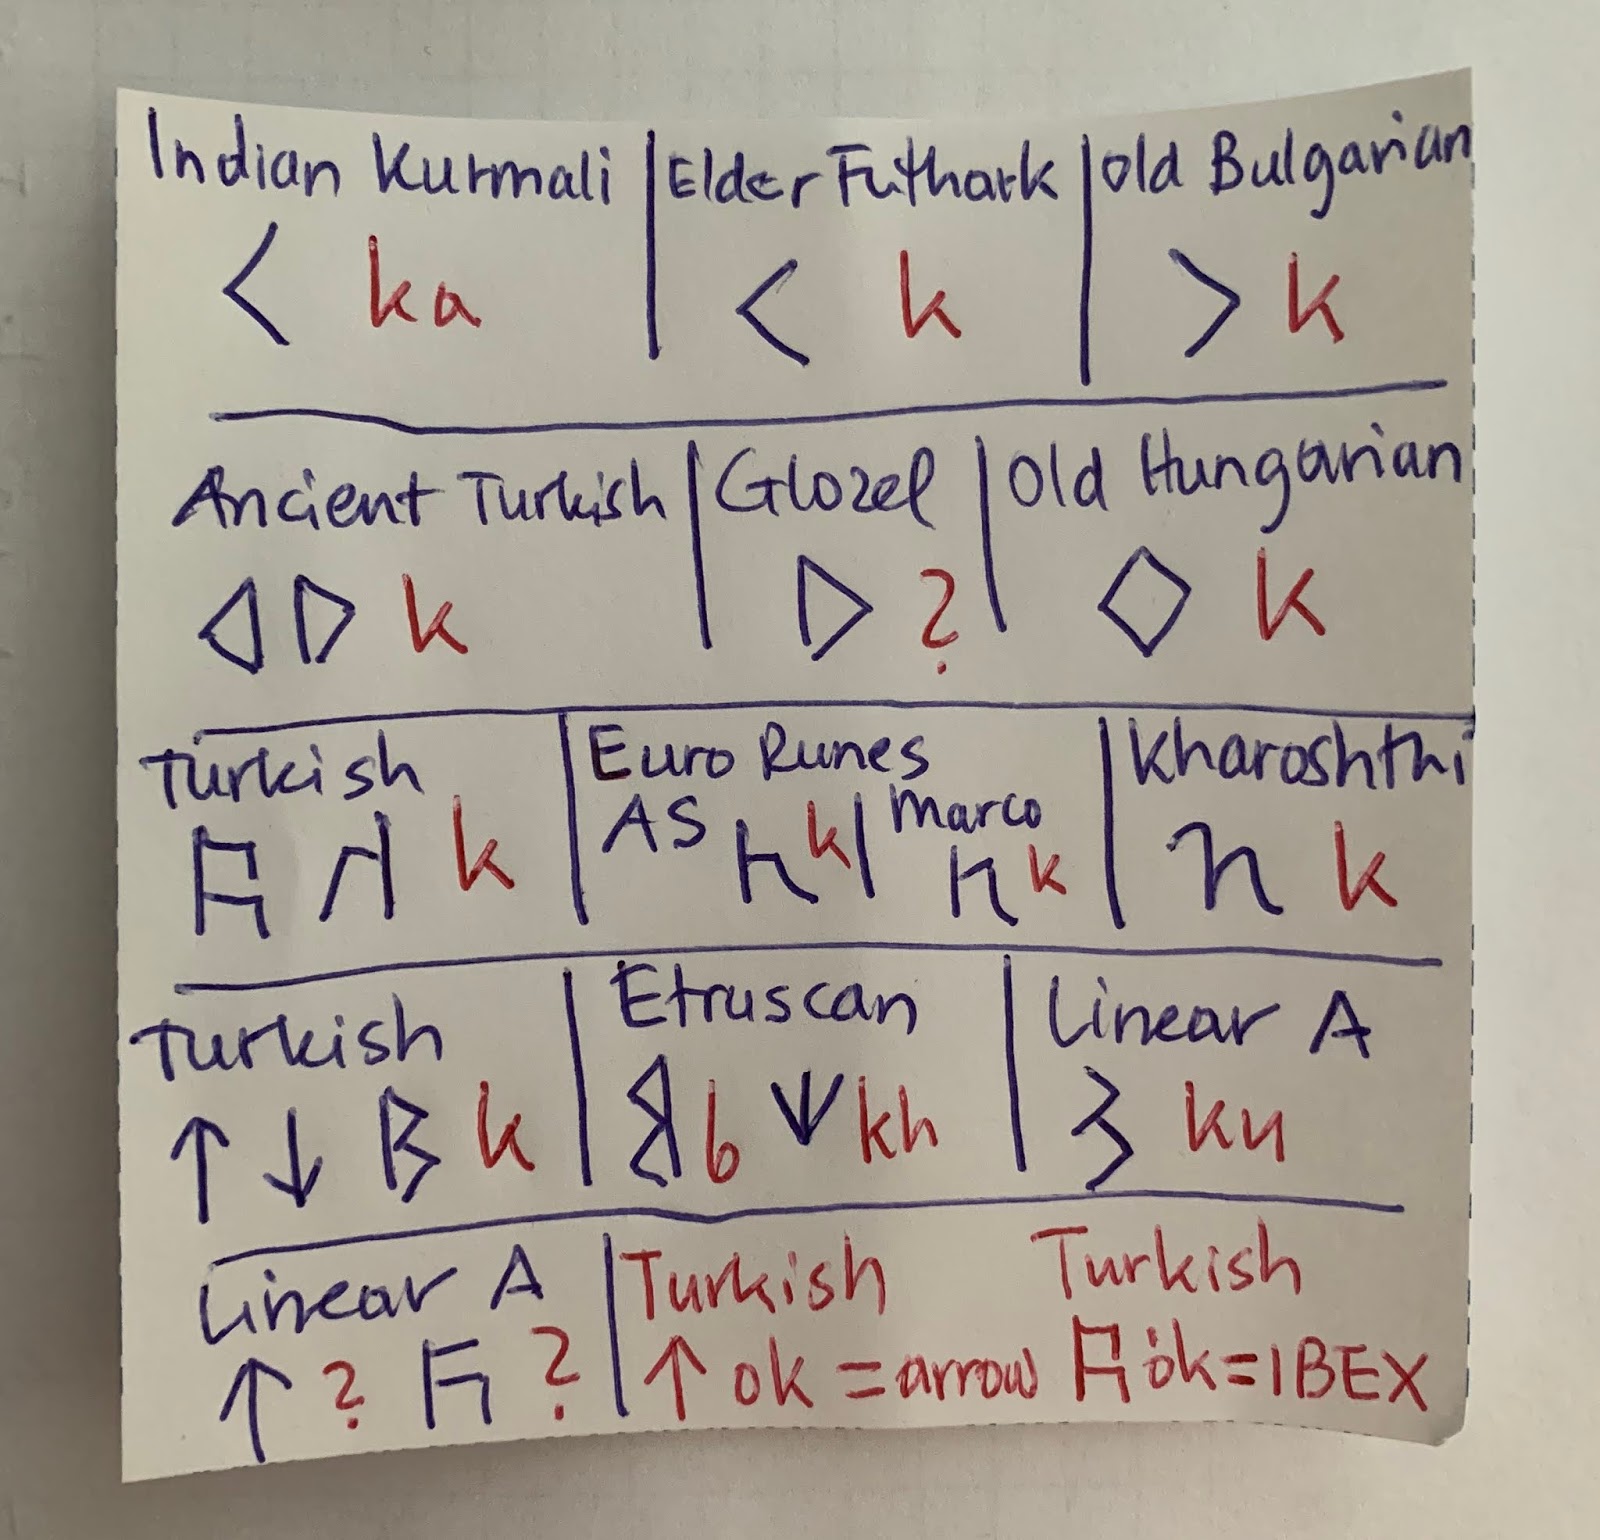 Indian Kurmali | Elder Futhark | Old Bulgarian
< ka | < k | > k
Ancient Turkish | Glozel | Old Hungarian
◁ ▷ k | ▷ ? | ◇ k
Turkish | Euro Runes | Kharoshthi
k | AS k | Marco k | k
Turkish | Etruscan | Linear A
↑ ↓ k | b ↓ kh | ku
Linear A | Turkish Turkish
↑ ? ? | ↑ ok = arrow ök = IBEX